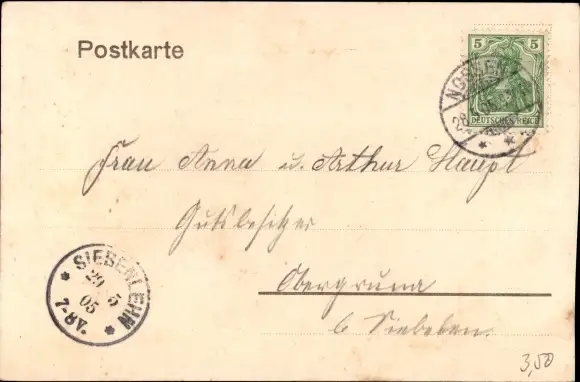 Postkarte
5 5
DEUTSCHES REICH
NOSSEN
28
Frau Anna u. Arthur Haupt
Gutsbesitzer
Obergruna
b Siebeben.
SIEBENLEHN
29 5
05
7-8V.
3,50